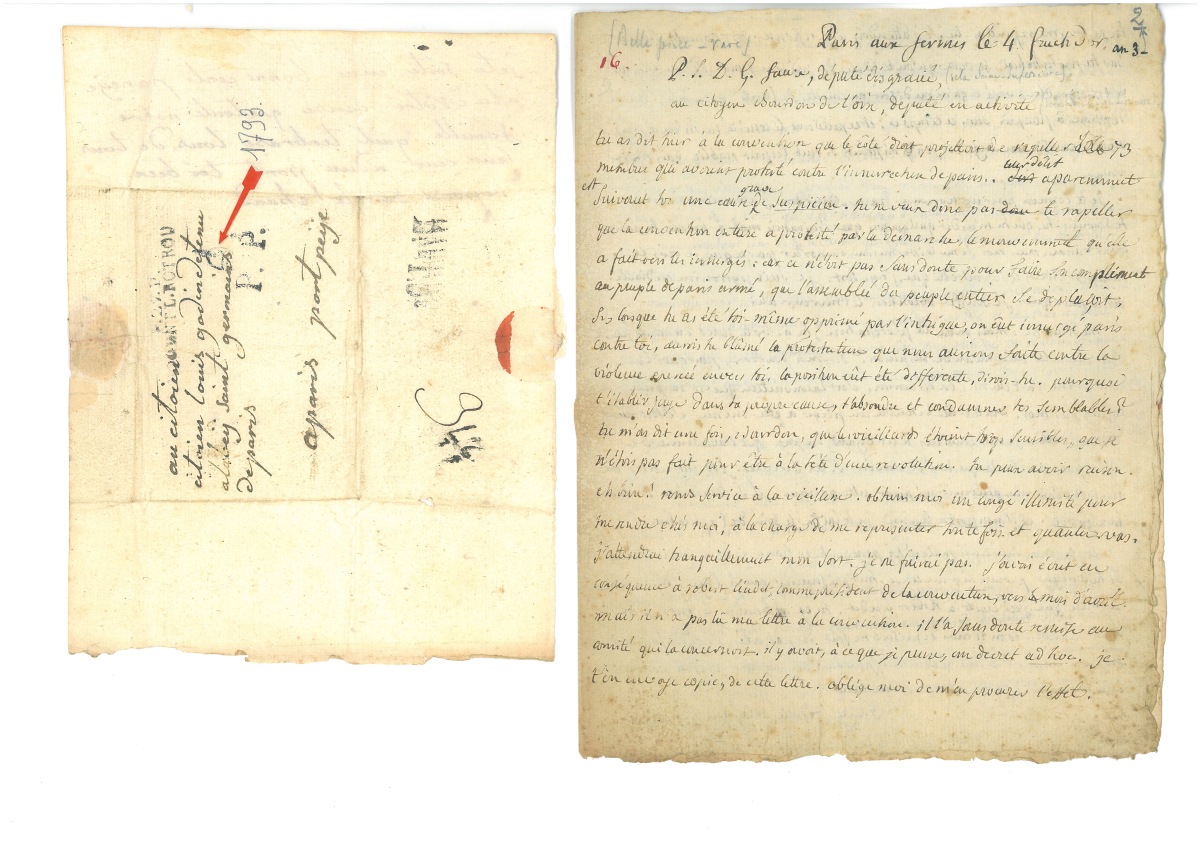 1793.
NOGENT L ROTROU
P. P.
au citoien
citoien louis godin detenu
abbaÿ saint germain
deparis
aparis port peÿe
2
(Belle pièce - rare)
Paris aux fermes le 4 fructidor an 3 -
16.
P. L. D. G. faure, député disgracié,
au citoyen Bourdon de l'oise, député en activité
tu as dit hier à la convention que le côté droit projettoit de rappeller les 73
membres qui avoient protesté contre l'insurrection de paris.. leur délit apparemment
et suivant toi une cause grave de suspicion. tu ne veux donc pas te rapeller
que la convention entiere a protesté par la demarche, le mouvement qu'elle
a fait vers les insurgés : car ce n'étoit pas sans doute pour faire son compliment
au peuple de paris armé, que l'assemblée du peuple entier se deplaçoit.
si, lorsque tu as été toi-même opprimé par l'intrigue, on eut insurgé paris
contre toi, aurois tu blâmé la protestation que nous aurions faite contre la
violence exercée envers toi, la position eut été differente, dirois-tu. pourquoi
t'établir juge dans ta propre cause, t'absoudre et condamner tes semblables ?
tu m'as dit une fois, Bourdon, que les vieillards étoient trop sensibles, que je
n'étois pas fait pour être à la tête d'une revolution. tu peux avoir raison.
eh bien ! rends service à la vieillesse. obtiens moi un congé illimité pour
me rendre chés moi, à la charge de me representer toute fois et quantes vas.
j'attendrai tranquillement mon sort. je ne fuirai pas. j'avois écrit en
consequence à robert lindet, comme président de la convention, vers le mois d'avril.
mais il n'a pas lû ma lettre à la convention. il l'a sans doute remise au
comité qui la concernoit. il y avoit, à ce que je pense, un decret ad hoc. je
t'en envoye copie, de cette lettre. oblige moi de m'en procurer l'effet.